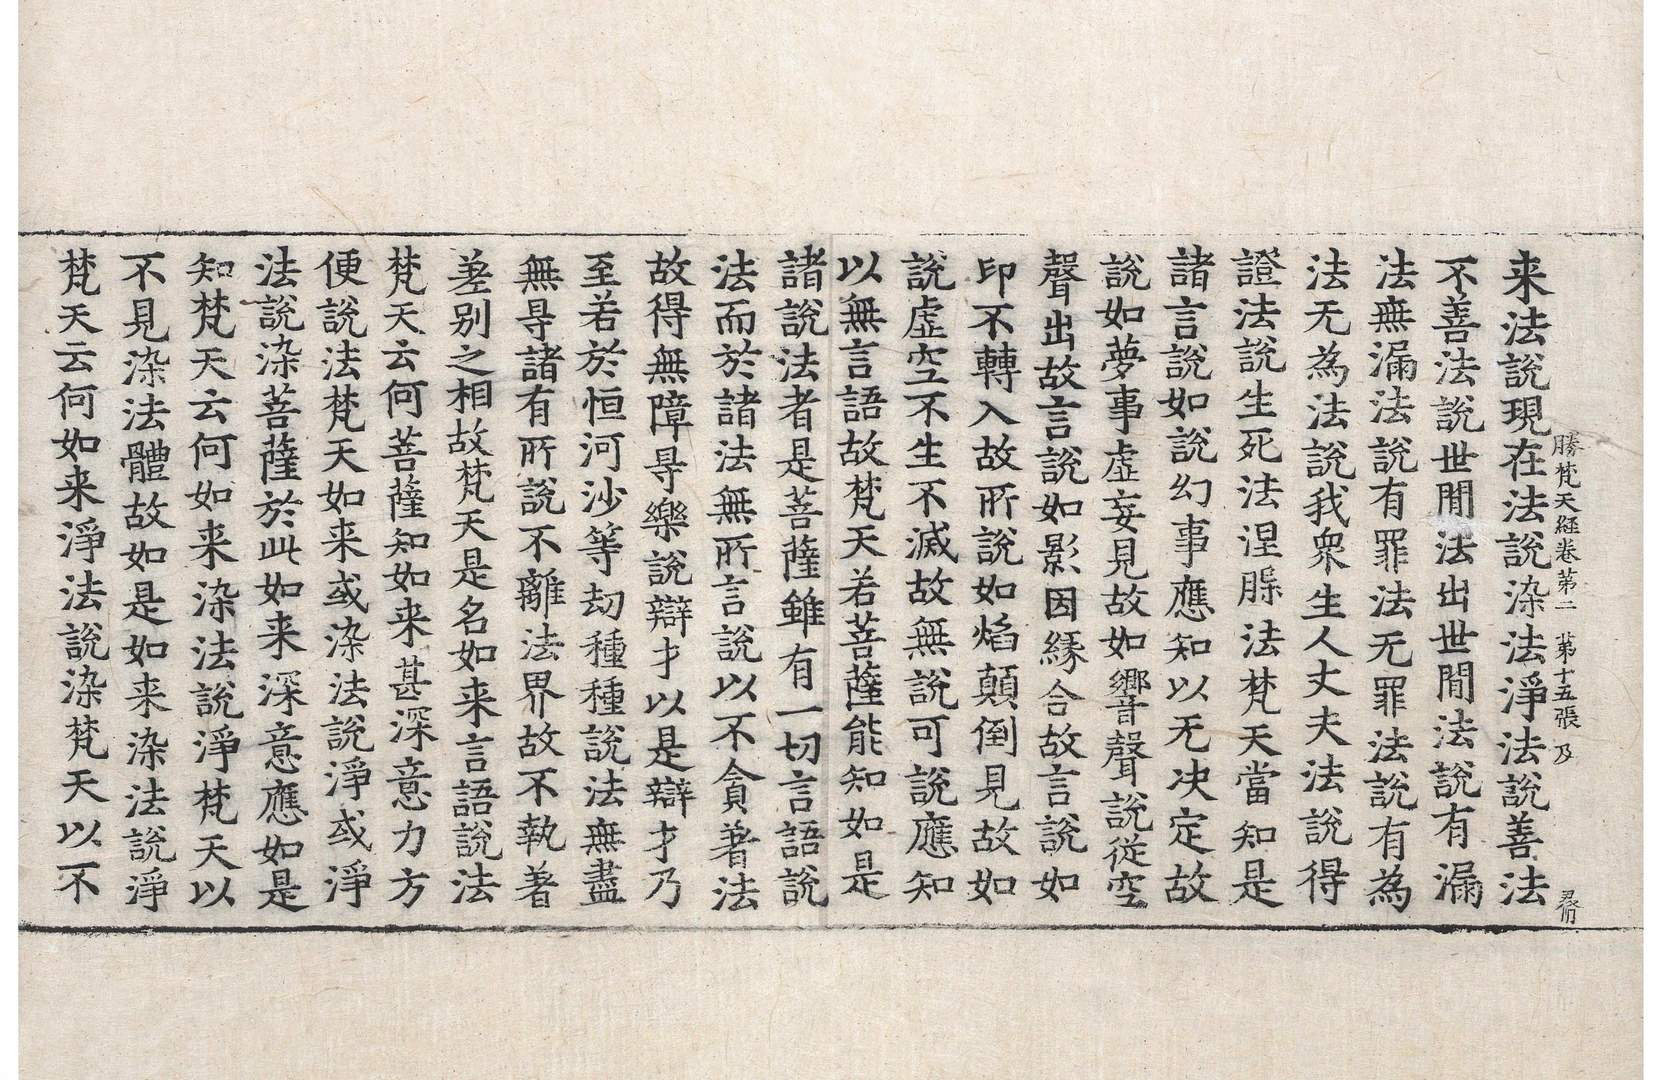 勝梵天経卷第二 第十五張 及
来法說現在法說染法淨法說善法
不善法說世間法出世間法說有漏
法無漏法說有罪法无罪法說有為
法无為法說我衆生人丈夫法說得
證法說生死法涅槃法梵天當知是
諸言說如說幻事應知以无决定故
說如夢事虛妄見故如響聲說從空
聲出故言說如影因緣合故言說如
印不轉入故所說如焰顛倒見故如
說虛空不生不滅故無說可說應知
以無言語故梵天若菩薩能知如是
諸說法者是菩薩雖有一切言語說
法而於諸法無所言說以不貪著法
故得無障㝵樂說辯才以是辯才乃
至若於恒河沙等劫種種說法無盡
無㝵諸有所說不離法界故不執著
差别之相故梵天是名如来言語說法
梵天云何菩薩知如来甚深意力方
便說法梵天如来或染法說淨或淨
法說染菩薩於此如来深意應如是
知梵天云何如来染法說淨梵天以
不見染法體故如是如来染法說淨
梵天云何如来淨法說染梵天以不